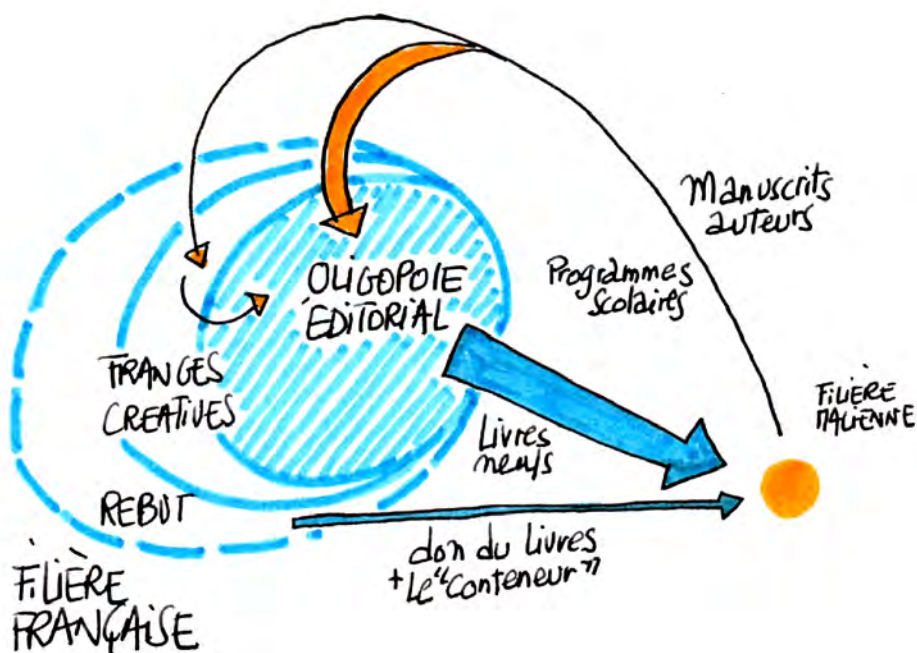 Manuscrits
auteurs
Programmes
scolaires
OLIGOPOLE
ÉDITORIAL
FRANGES
CREATIVES
FILIÈRE
MALIENNE
Livres
neufs
REBUT
don du Livres
+ Le "conteneur"
FILIÈRE
FRANÇAISE